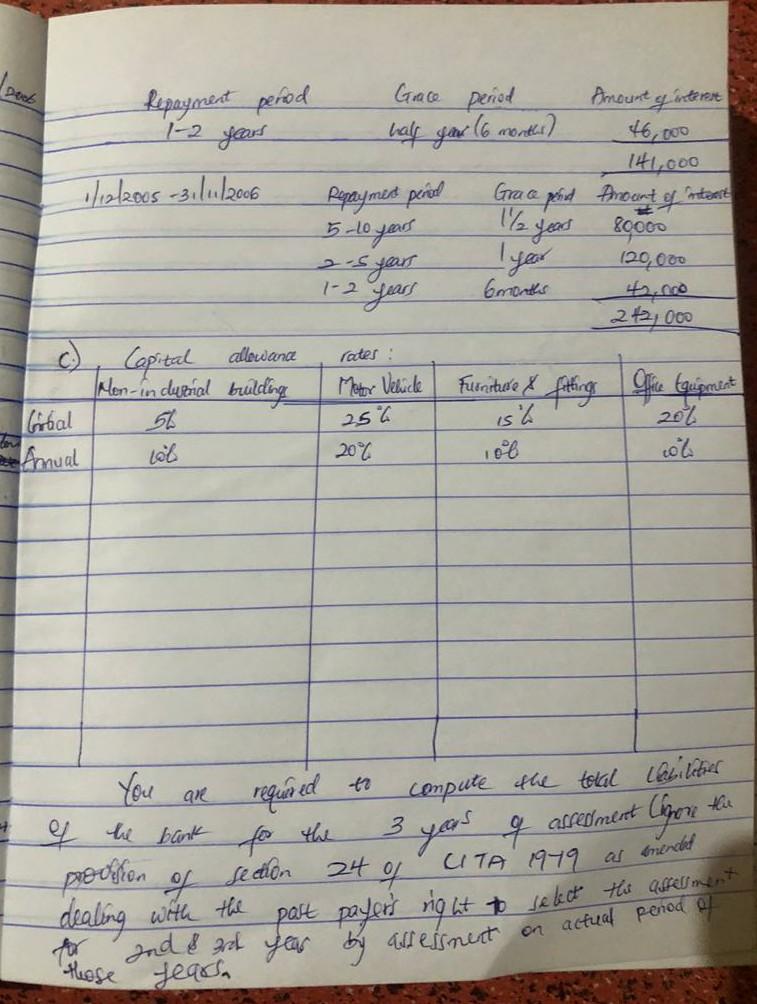 Repayment period Grace period Amount of interest
1-2 years half year (6 months) 46,000
141,000
1/12/2005 - 31/11/2006 Repayment period Grace period Amount of interest
5-10 years 1 1/2 years 80,000
2-5 years 1 year 120,000
1-2 years 6 months 42,000
242,000
c.) Capital allowance rates:
Non-industrial buildings Motor Vehicle Furniture & fittings Office Equipment
Initial 5% 25% 15% 20%
Annual 10% 20% 10% 10%
You are required to compute the total liabilities
of the bank for the 3 years of assessment (ignore the
provision of section 24 of CITA 1979 as amended
dealing with the past payer's right to select the assessment
for 2nd & 3rd year by assessment on actual period of
those years.